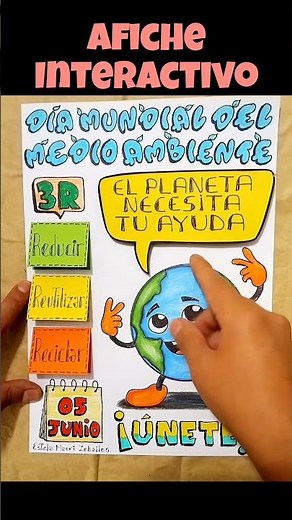 AFICHE
INTERACTIVO
DÍA MUNDIAL DEL
MEDIO AMBIENTE
3R
EL PLANETA
NECESITA
TU AYUDA
Reducir
Reutilizar
Reciclar
05
JUNIO
¡ÚNETE!